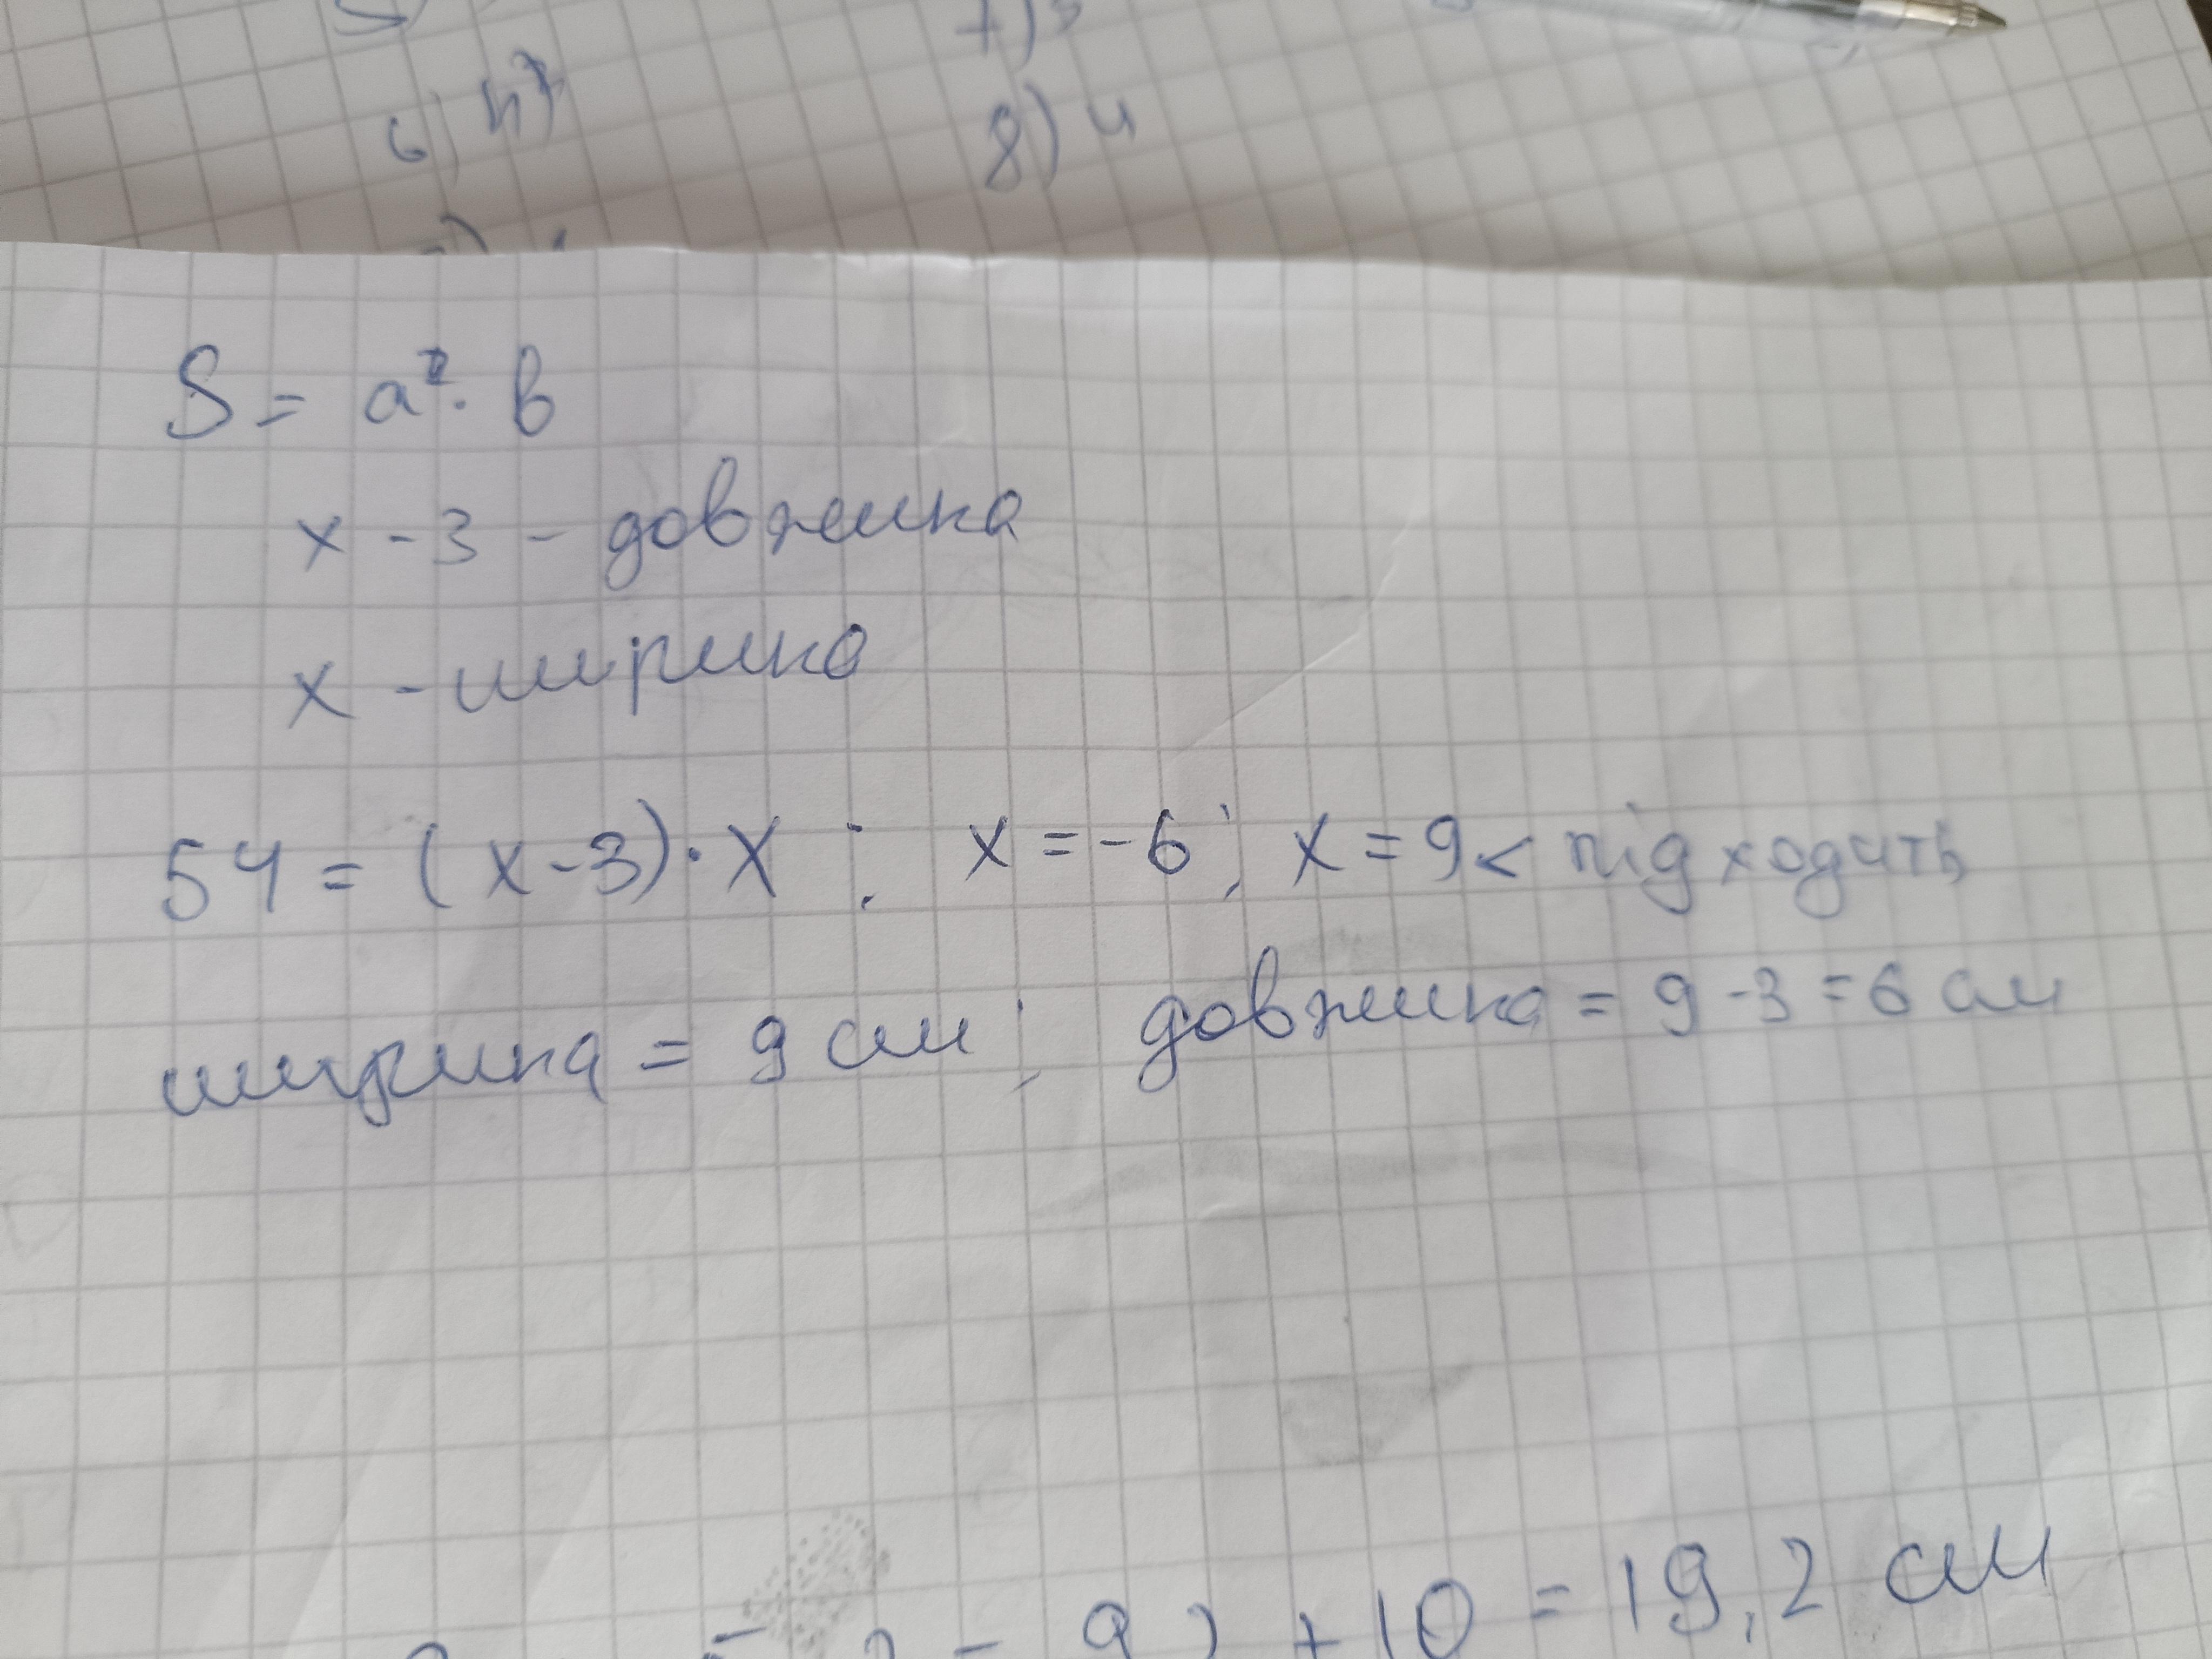 6) h⁷
8) 4
S = a² · b
x - 3 - довжина
x - ширина
54 = (x-3) · x ; x = -6 ; x = 9 < підходить
ширина = 9 см ; довжина = 9 - 3 = 6 см
+ 10 = 19,2 см